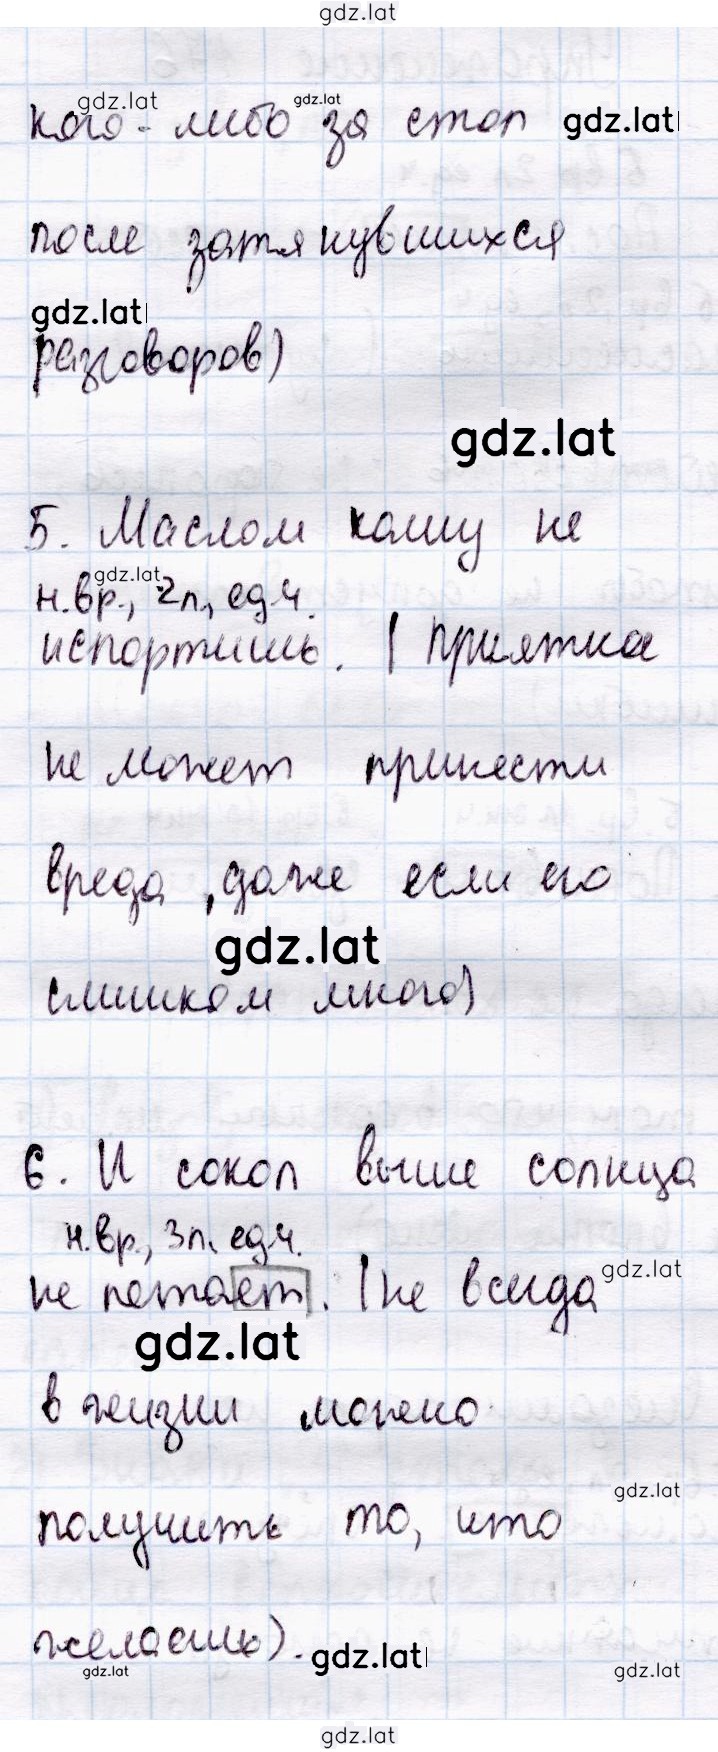 gdz.lat
gdz.lat
gdz.lat
кого-либо за стол gdz.lat
после затянувшихся
gdz.lat
разговоров)
gdz.lat
5. Маслом кашу не
gdz.lat
н.вр., 2л., ед.ч.
испортишь. (приятное
не может принести
вреда, даже если его
gdz.lat
слишком много)
6. И сокол выше солнца
н.вр., 3л. ед.ч.
не летает. (не всегда gdz.lat
gdz.lat
в жизни можно
gdz.lat
получить то, что
желаешь). gdz.lat
gdz.lat
gdz.lat
gdz.lat